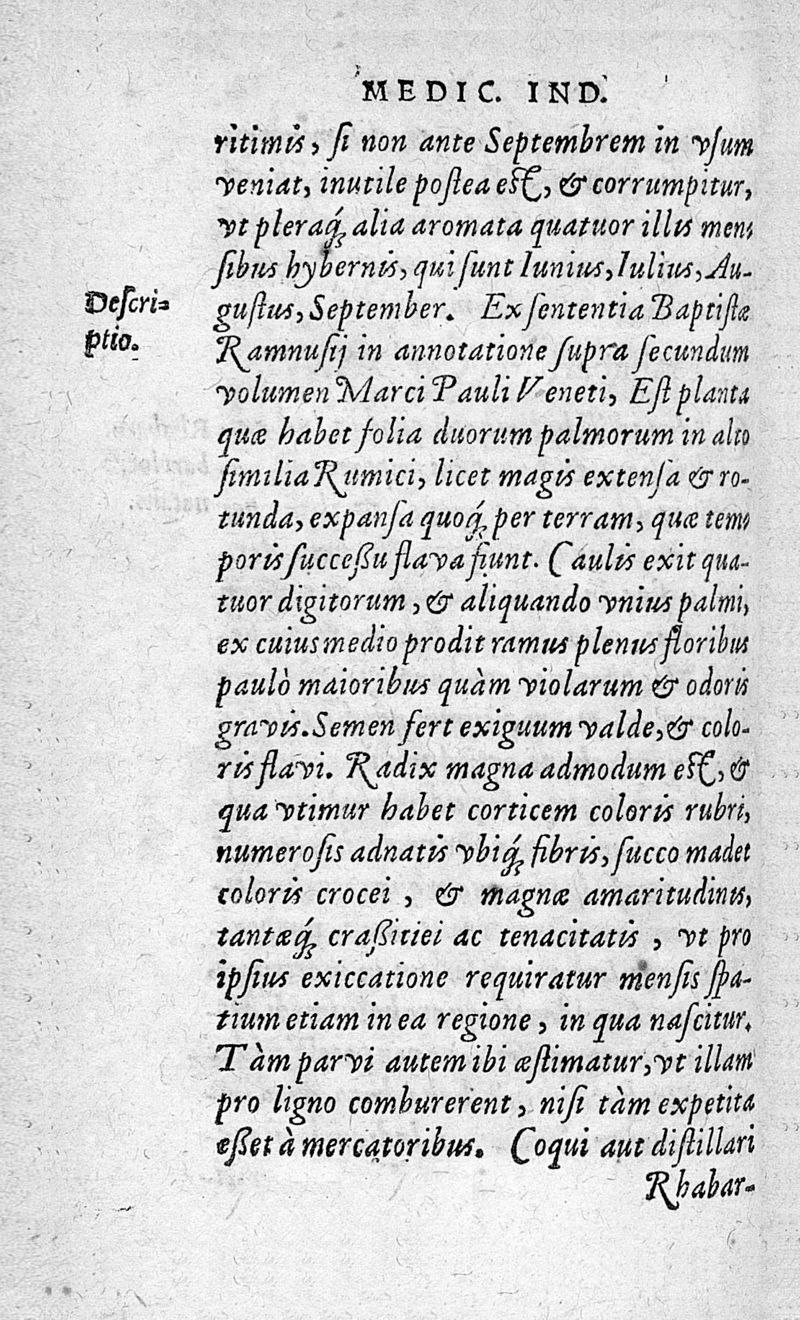 MEDIC. IND.
ritimis, ſi non ante Septembrem in vſum
veniat, inutile poſtea eſt, & corrumpitur,
vt pleraq́; alia aromata quatuor illis men-
ſibus hybernis, qui ſunt Iunius, Iulius, Au-
Deſcri-
ptio.
guſtus, September. Ex ſententia Baptiſtæ
Ramnuſij in annotatione ſupra ſecundum
volumen Marci Pauli Veneti, Eſt planta
quæ habet folia duorum palmorum in alto
ſimilia Rumici, licet magis extenſa & ro-
tunda, expanſa quoq́; per terram, quæ tem-
poris ſucceßu flava fiunt. Caulis exit qua-
tuor digitorum, & aliquando vnius palmi,
ex cuius medio prodit ramus plenus floribus
paulò maioribus quàm violarum & odoris
gravis. Semen fert exiguum valde, & colo-
ris flavi. Radix magna admodum eſt, &
qua vtimur habet corticem coloris rubri,
numeroſis adnatis vbiq́; fibris, ſucco madet
coloris crocei, & magnæ amaritudinis,
tantæq́; craßitiei ac tenacitatis, vt pro
ipſius exiccatione requiratur menſis ſpa-
tium etiam in ea regione, in qua naſcitur.
Tàm parvi autem ibi æſtimatur, vt illam
pro ligno comburerent, niſi tàm expetita
eßet à mercatoribus. Coqui aut diſtillari
Rhabar-